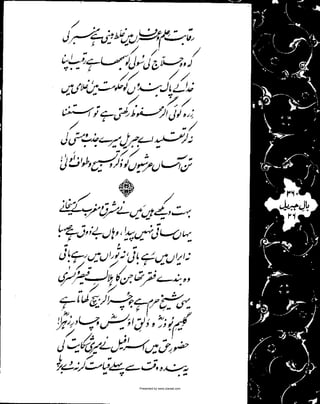 رقابت علم و عرفاں میں غلط بینی ہے منبر کی
کہ وہ حلّاج کی سولی کو سمجھا ہے رقیب اپنا
خدا کے پاک بندوں کو حکومت میں، غلامی میں
زرہ کوئی اگر محفوظ رکھتی ہے تو استغنا
نہ کر تقلید اے جبریل میرے جذب و مستی کی
تن آساں عرشیوں کو ذکر و تسبیح و طواف اولیٰ
بہت دیکھے ہیں میں نے مشرق و مغرب کے میخانے
یہاں ساقی نہیں پیدا، وہاں بے ذوق ہے صہبا
نہ ایراں میں رہے باقی، نہ توراں میں رہے باقی
وہ بندے فقر تھا جن کا ہلاکِ قیصر و کسریٰ
یہی شیخِ حرم ہے جو چرا کر بیچ کھاتا ہے
گلیمِ بوذرؓ و دلقِ اویسؓ و چادرِ زہراؓ!
حضورِ حق میں اسرافیل نے میری شکایت کی
یہ بندہ وقت سے پہلے قیامت کر نہ دے برپا!
بالِ جبریل
Presented by www.ziaraat.com